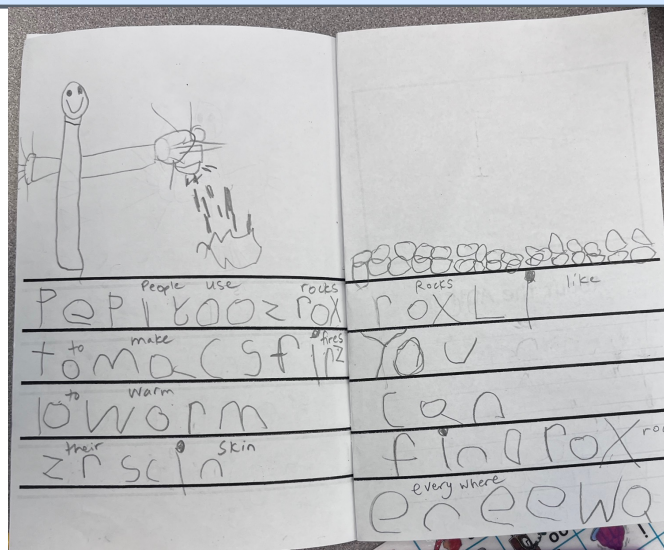 People use rocks
Pepl tooz rox
to make fires
tomacsfirz
to warm
to worm
their skin
zr scin
Rocks like
rox Li
You
can
find rox
every where
ereewa